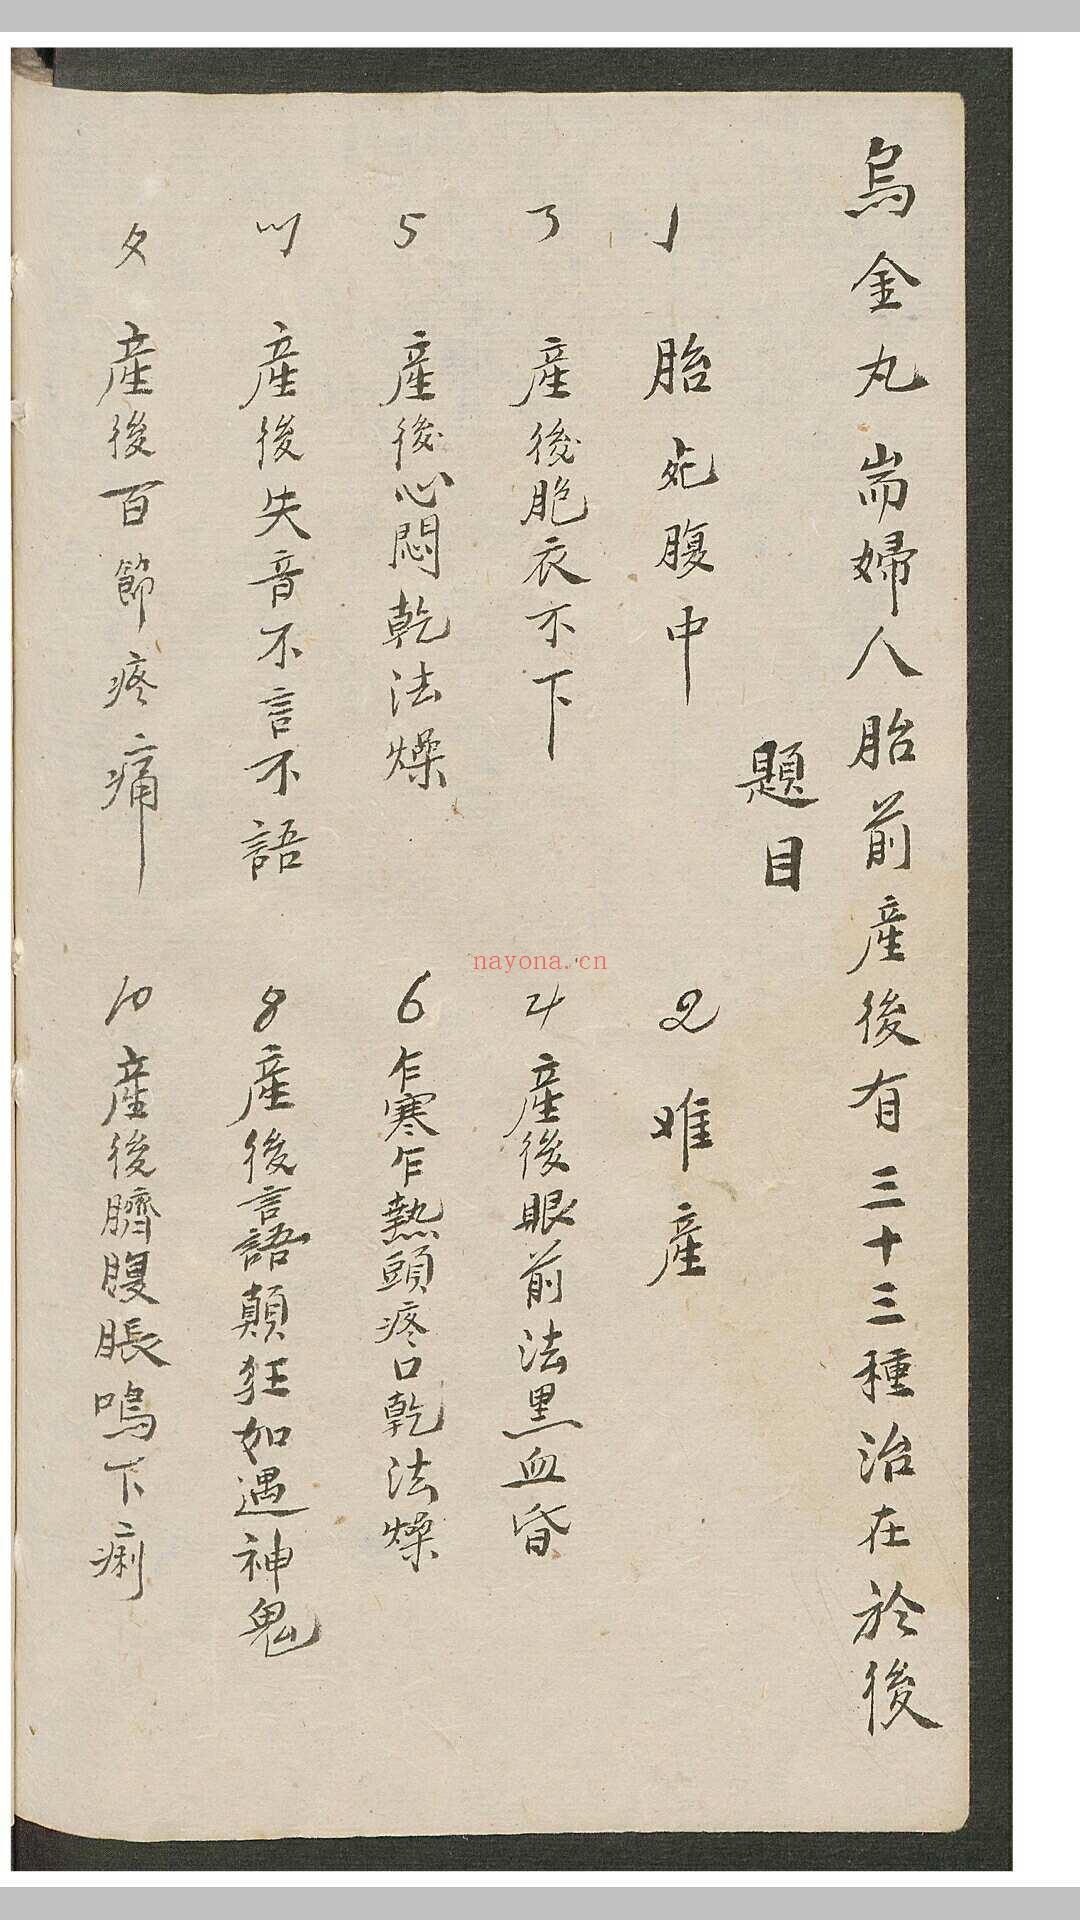 烏金丸耑婦人胎前産後有三十三種治在於後
題目
1 胎死腹中 2 难産
3 産後胞衣不下 4 産後眼前法黒血昏
5 産後心悶乾法燥 6 乍寒乍熱頭疼口乾法燥
7 産後失音不言不語 8 産後言語顛狂如遇神鬼
9 産後百節疼痛 10 産後臍腹脹鳴下痢
nayona.cn